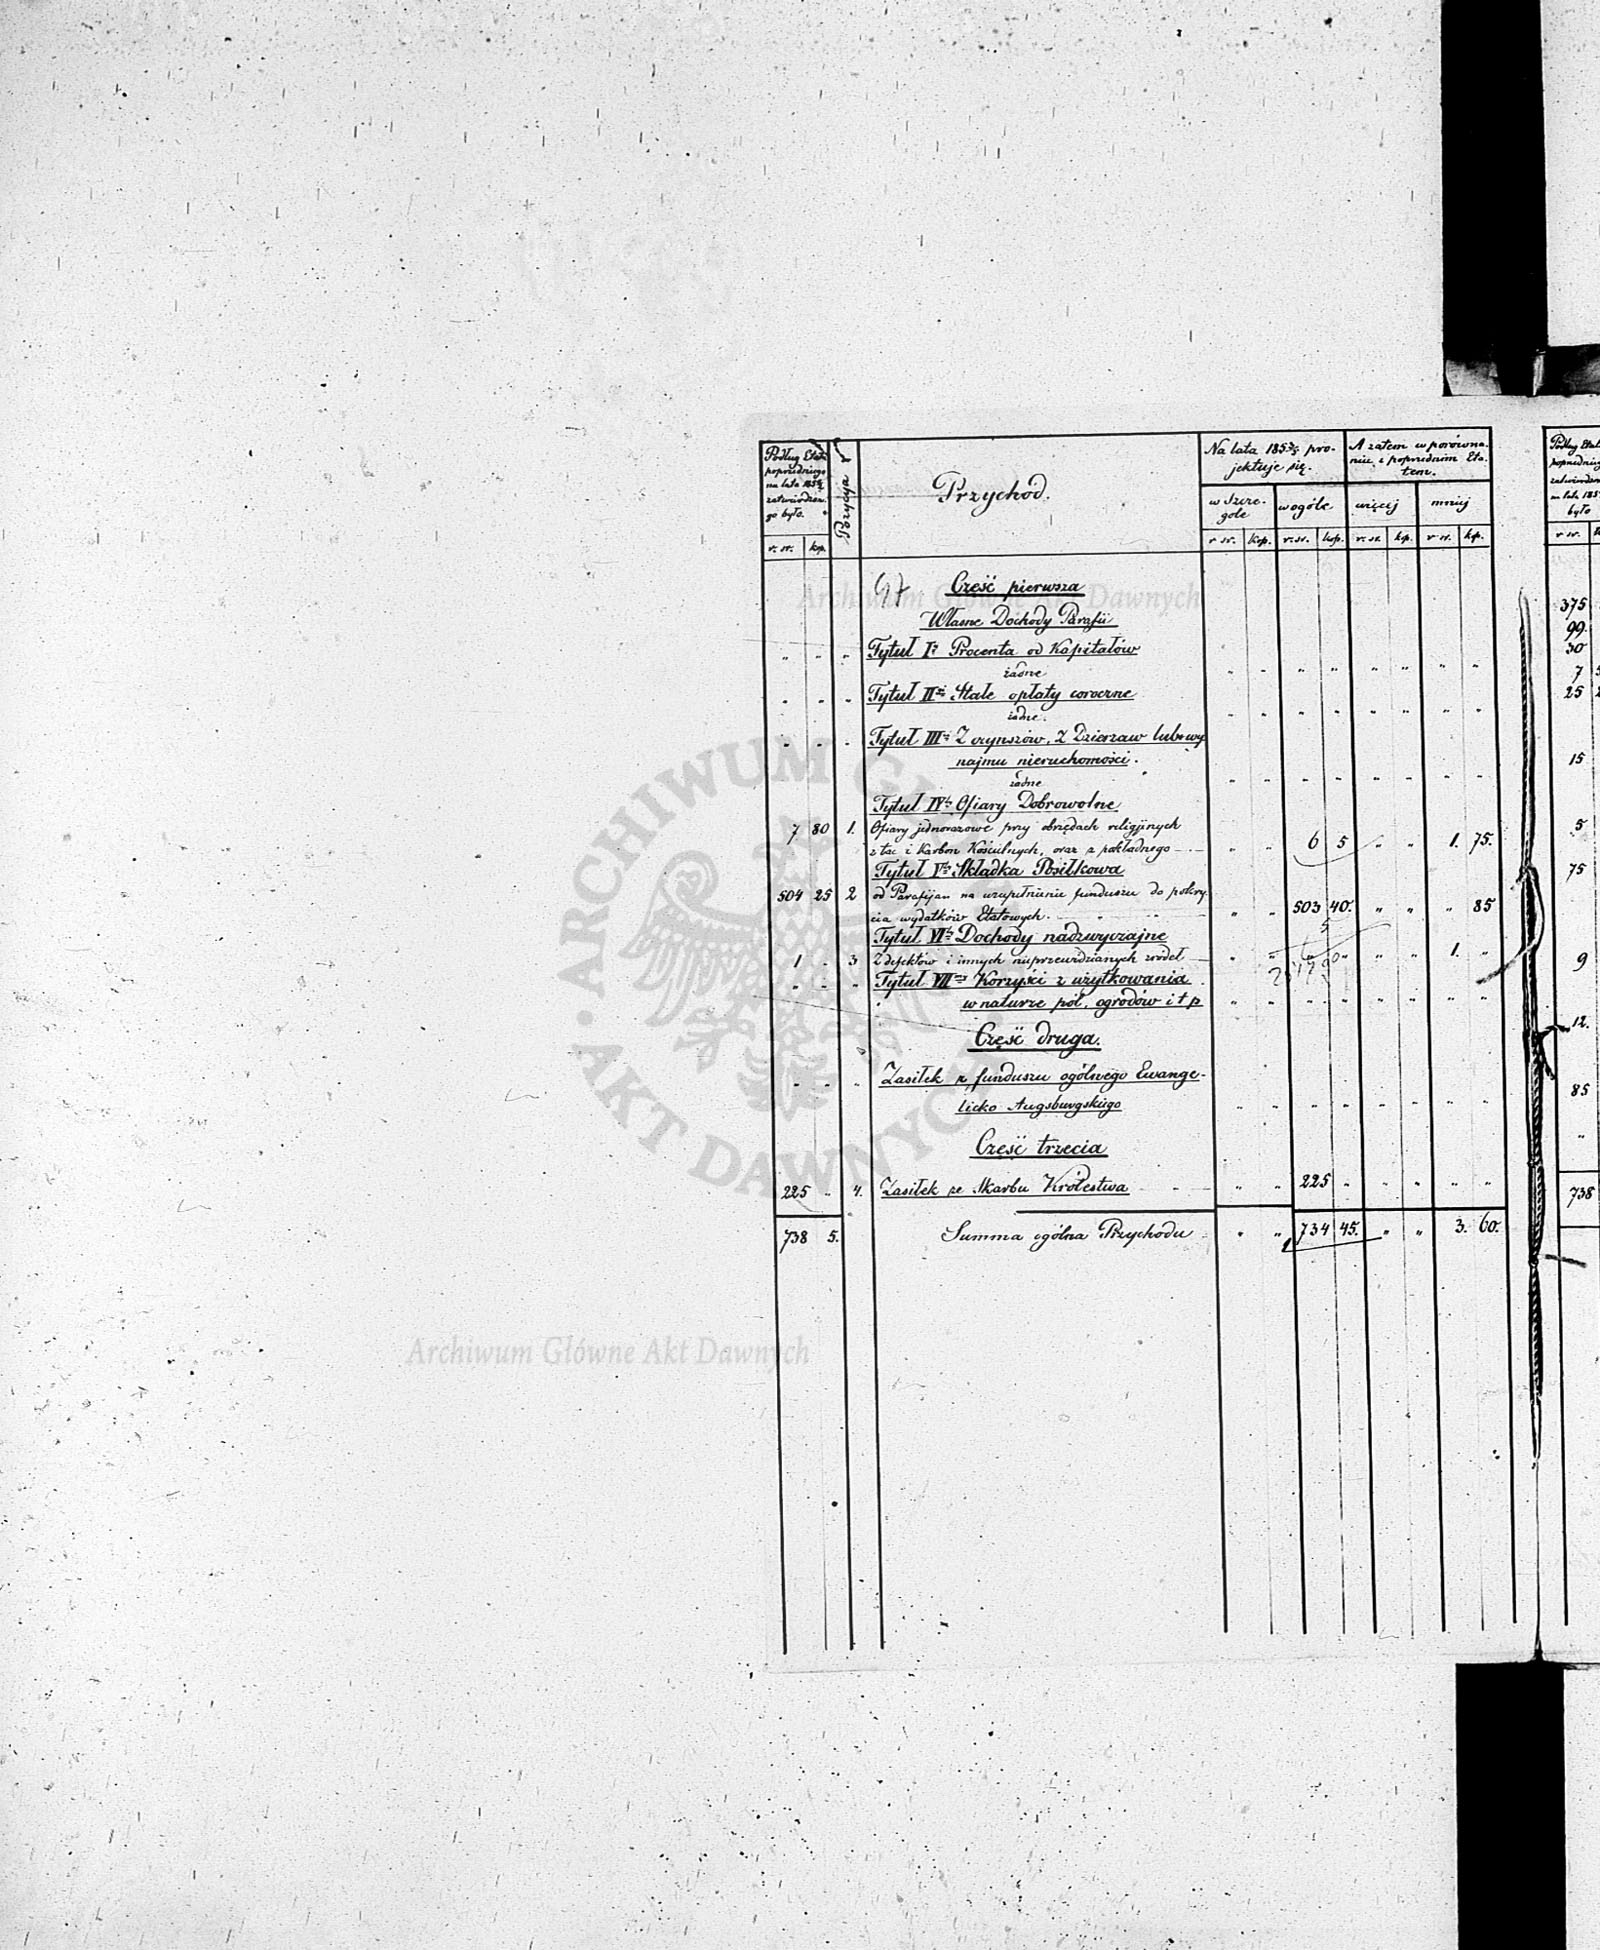 Podług Etatu
poprzedniego
na lata 185
zatwierdzone-
go było.
r. sr. kop.
Pozycya
Przychód.
Na lata 185 pro-
jektuje się.
w szcze-
góle
wogóle
r sr. kop. r. sr. kop.
A zatem w porówna-
niu z poprzednim Eta-
tem.
więcej mniej
r. sr. kp. r sr. kp.
Część pierwsza
Własne Dochody Parafii
" " " Tytuł I Procenta od Kapitałów
żadne " " " " " " " "
" " " Tytuł II Stałe opłaty coroczne
żadne. " " " " " " " "
" " " Tytuł III Z czynszów, z Dzierżaw lub wy
najmu nieruchomości.
żadne " " " " " " " "
Tytuł IV Ofiary Dobrowolne
7 80 1. Ofiary jednorazowe przy obrzędach religijnych
z tac i Karbon Kościelnych, oraz z pokładnego " " 6 5 " " 1. 75.
Tytuł V Składka Posiłkowa
504 25 2 od Parafijan na uzupełnienie funduszu do pokry-
cia wydatków Etatowych. " " 503 40. " " " 85
Tytuł VI Dochody nadzwyczajne
1 " 3 Z defektów i innych nieprzewidzianych źródeł " " " " " " 1. "
" " " Tytuł VII Korzyści z użytkowania
w naturze pól, ogrodów i t p " " " " " " " "
Część druga.
" " " Zasiłek z funduszu ogólnego Ewange-
licko Augsburgskiego " " " " " " " "
Część trzecia
225 " 4. Zasiłek ze Skarbu Królestwa " " 225 " " " " "
738 5. Summa ogólna Przychodu " " 734 45. " " 3. 60.
Podług Etatu
poprzedniego
było
r sr.
375
99.
30
7
25
15
5
75
9
12.
85
"
738
Archiwum Główne Akt Dawnych
ARCHIWUM GŁÓWNE AKT DAWNYCH
Archiwum Główne Akt Dawnych